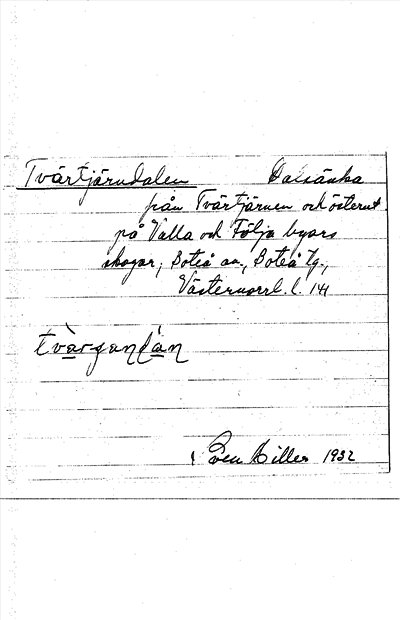 Tvärtjärndalen Dalsänka
från Tvärtjärnen och österut
på Valla och Följa byars
skogar, Boteå sn., Boteå tg.,
Västernorrl. l. 141
Sven Hillen 1932